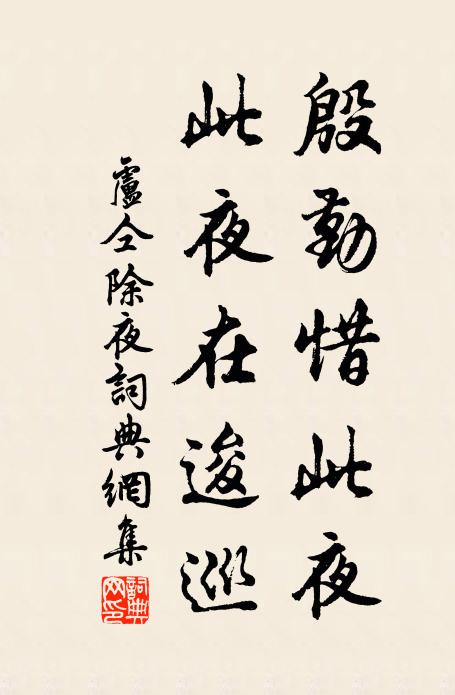 殷勤惜此夜
此夜在逡巡
盧仝除夜詞典網集
詞典網印